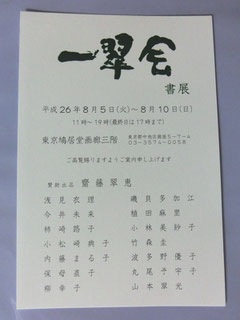 一翠会
書展
平成26年8月5日(火)～8月10日(日)
11時～19時(最終日は17時まで)
東京鳩居堂画廊三階
東京都中央区銀座5-7-4
03-3574-0058
ご高覧賜りますようご案内申し上げます
賛助出品 齋藤翠恵
浅見衣理
今井未来
柿崎路子
小松崎典子
内藤まる子
保母直子
柳幸子
磯貝多加江
植田麻里
小林美紗子
竹森圭
波多野優子
丸尾千宇子
山本翠光